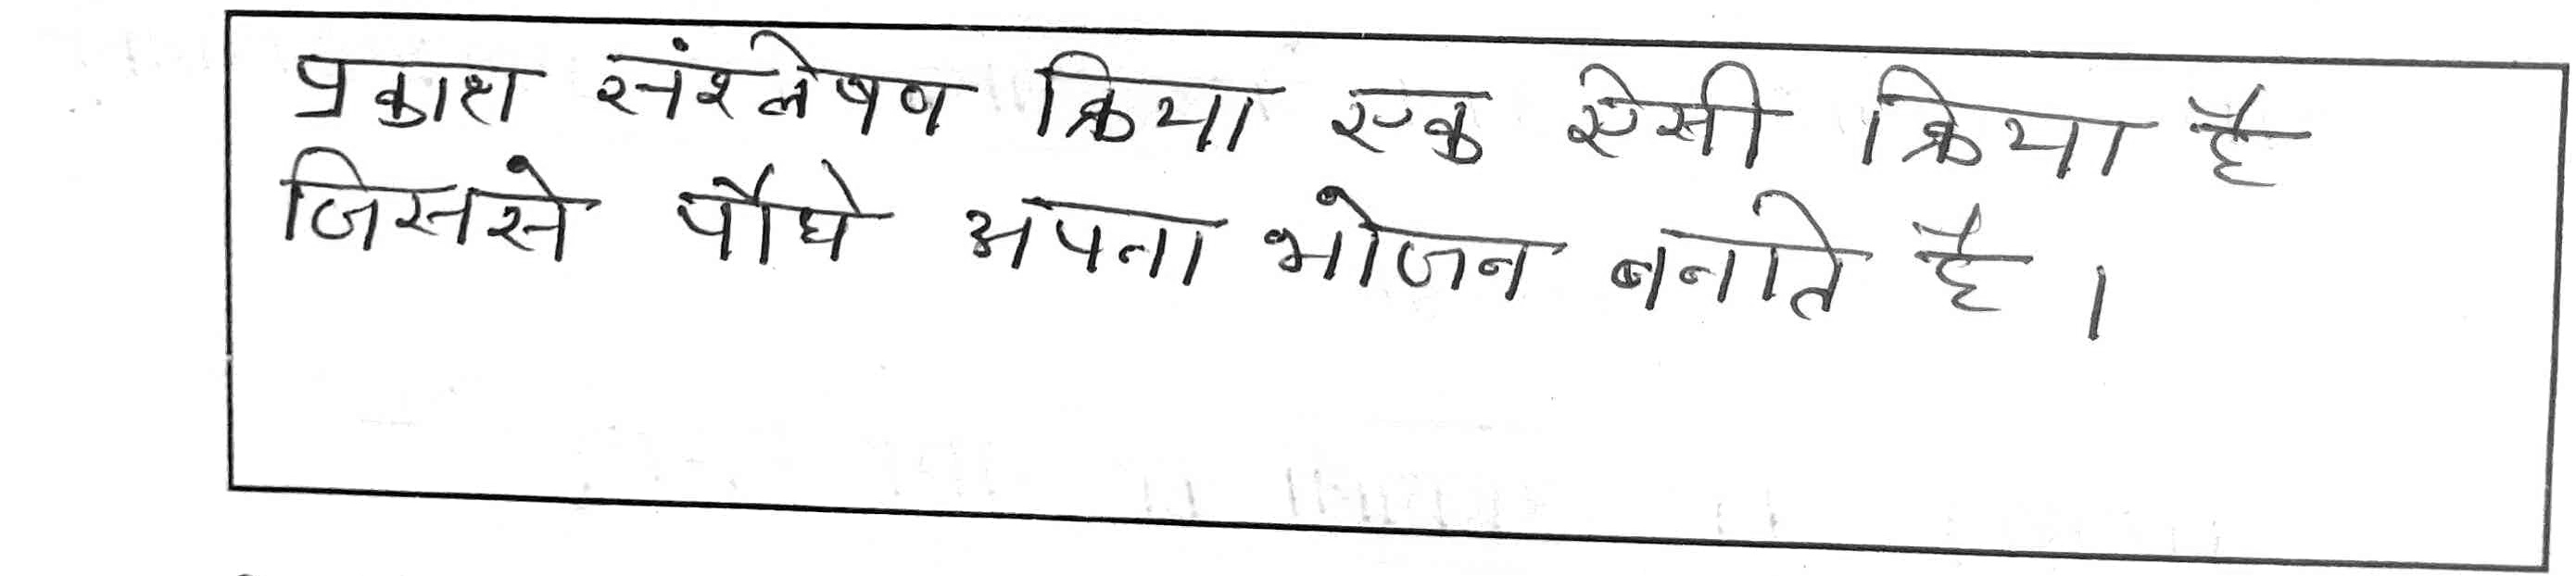 प्रकाश संश्लेषण क्रिया एक ऐसी क्रिया है
जिससे पौधे अपना भोजन बनाते है ।